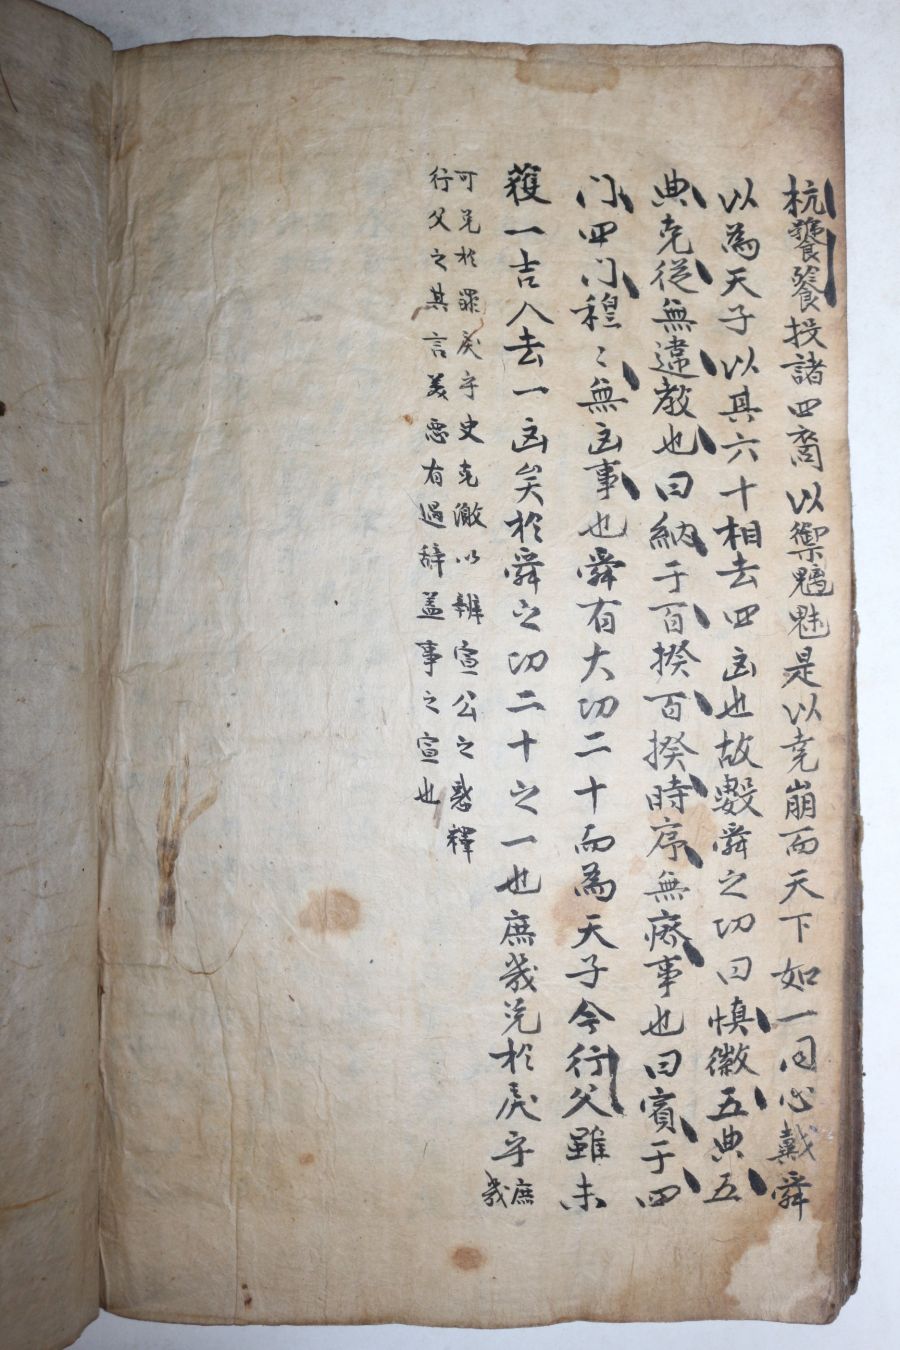 杭饕餮投諸四裔以禦魑魅是以堯崩而天下如一同心戴舜
以為天子以其六十相去四凶也故數舜之功曰慎徽五典五
典克從無違教也曰納于百揆百揆時序無廢事也曰賓于四
门四门穆〻無凶事也舜有大功二十而為天子今行父雖未
獲一吉人去一凶矣於舜之功二十之一也庶幾免於戾乎庶幾
可免於罪戾乎史克激以辨宣公之惑釋
行父之其言美惡有過辞盖事之宣也